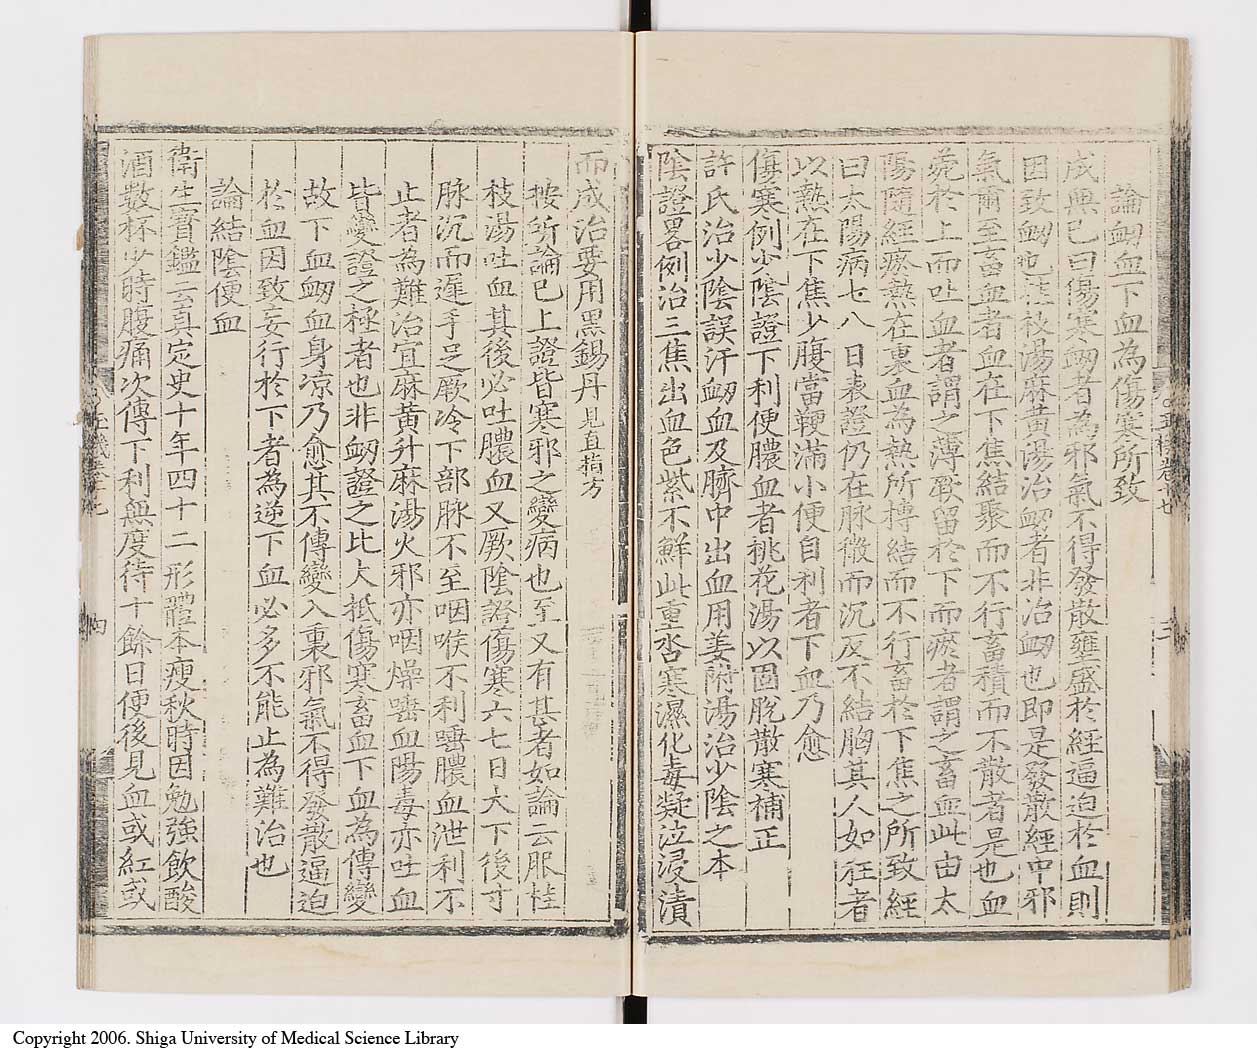 論衂血下血為傷寒所致
成無已曰傷寒衂者為邪氣不得發散壅盛於經逼迫於血則
因致衂也桂枝湯麻黃湯治衂者非治衂也即是發散經中邪
氣爾至畜血者血在下焦結聚而不行畜積而不散者是也血
菀於上而吐血者謂之薄厥留於下而瘀者謂之畜血此由太
陽隨經瘀熱在裏血為熱所搏結而不行畜於下焦之所致經
曰太陽病七八日表證仍在脉微而沉反不結胸其人如狂者
以熱在下焦少腹當鞕滿小便自利者下血乃愈
傷寒例少陰證下利便膿血者桃花湯以固脫散寒補正
許氏治少陰誤汗衂血及臍中出血用姜附湯治少陰之本
陰證畧例治三焦出血色紫不鮮此重沓寒濕化毒凝泣浸漬
而成治要用黑錫丹見直指方
按所論已上證皆寒邪之變病也至又有甚者如論云服桂
枝湯吐血其後必吐膿血又厥陰證傷寒六七日大下後寸
脉沉而遲手足厥冷下部脉不至咽喉不利唾膿血泄利不
止者為難治宜麻黃升麻湯火邪亦咽燥唾血陽毒亦吐血
皆變證之極者也非衂證之比大抵傷寒畜血下血為傳變
故下血衂血身凉乃愈其不傳變入裏邪氣不得發散逼迫
於血因致妄行於下者為逆下血必多不能止為難治也
論結陰便血
衛生寶鑑云真定史十年四十二形體本瘦秋時因勉強飲酸
酒数杯少時腹痛次傳下利無度待十餘日便後見血或紅或
四
Copyright 2006. Shiga University of Medical Science Library